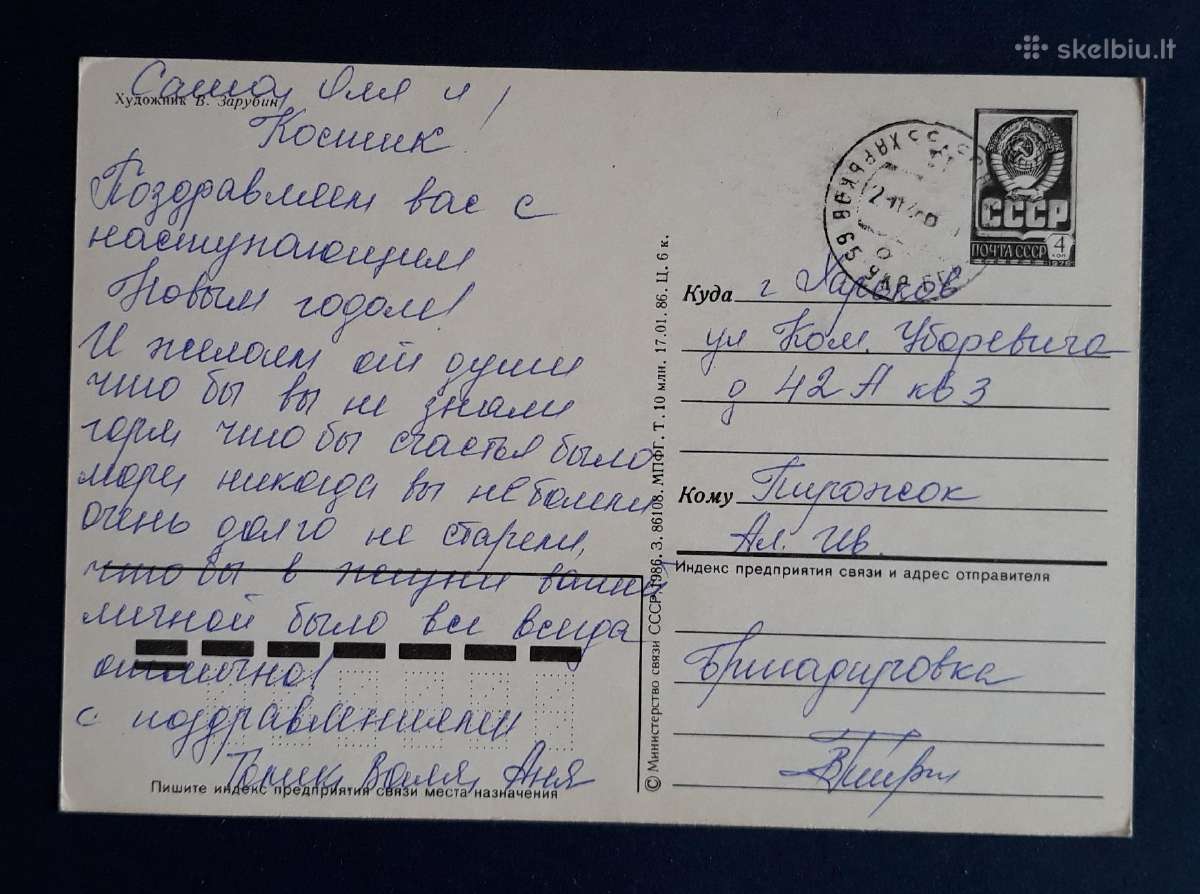 skelbiu.lt
Художник В. Зарубин
Саша, Оля и
Костик!
Поздравляем вас с
наступающим
Новым годом!
И желаем от души
что бы вы не знали
горя что бы счастья было
море, никогда вы не болели
очень долго не старели,
что бы в жизни вашей
личной было все всегда
отлично!
с поздравлениями
Толик, Валя, Аня
Пишите индекс предприятия связи места назначения
© Министерство связи СССР. 1986. З. 86108. МПФГ. Т. 10 млн. 17.01.86. Ц. 6 к.
ХАРЬКОВ 59
СССР
ПОЧТА СССР 4 КОП
1976
Куда г Харьков
ул Ком. Уборевича
д 42А кв 3
Кому Пирожок
Ал. Ив.
Индекс предприятия связи и адрес отправителя
Бригадировка